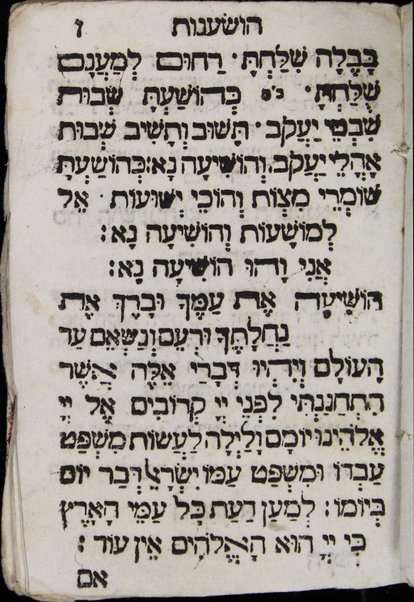 הושענות ז
בָּבֶלָה שִׁלַּחְתָּ · רַחוּם לְמַעֲנָם
שֻׁלַּחְתָּ · כ״ס כְּהוֹשַׁעְתָּ שְׁבוּת
שִׁבְטֵי יַעֲקֹב · תָּשׁוּב וְתָשִׁיב שְׁבוּת
אָהֳלֵי יַעֲקֹב. וְהוֹשִׁיעָה נָא: כְּהוֹשַׁעְתָּ
שׁוֹמְרֵי מִצְוֹת וְחוֹכֵי יְשׁוּעוֹת · אֵל
לְמוֹשָׁעוֹת וְהוֹשִׁיעָה נָא:
אֲנִי וָהוּ הוֹשִׁיעָה נָא:
הוֹשִׁיעָה אֶת עַמֶּךָ וּבָרֵךְ אֶת
נַחֲלָתֶךָ וּרְעֵם וְנַשְּׂאֵם עַד
הָעוֹלָם וְיִהְיוּ דְּבָרַי אֵלֶּה אֲשֶׁר
הִתְחַנַּנְתִּי לִפְנֵי יְיָ קְרוֹבִים אֶל יְיָ
אֱלֹהֵינוּ יוֹמָם וָלַיְלָה לַעֲשׂוֹת מִשְׁפַּט
עַבְדּוֹ וּמִשְׁפַּט עַמּוֹ יִשְׂרָאֵל דְּבַר יוֹם
בְּיוֹמוֹ: לְמַעַן דַּעַת כָּל עַמֵּי הָאָרֶץ
כִּי יְיָ הוּא הָאֱלֹהִים אֵין עוֹד:
אם